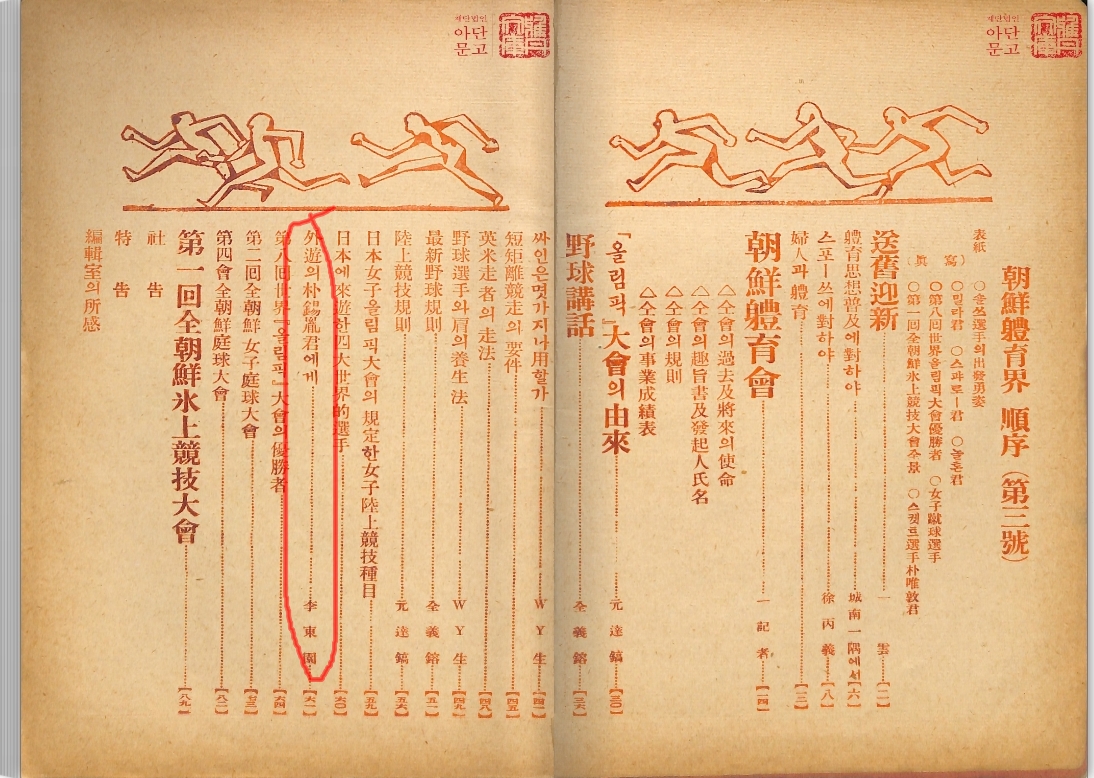 재단법인
아단
문고
재단법인
아단
문고
朝鮮體育界 順序 (第三號)
表紙
(寫眞)
○쏠쓰選手의出發勇姿
○밀라君 ○스파로ー君 ○놀혼君
○第八回世界올림픽大會優勝者 ○女子蹴球選手
○第一回全朝鮮氷上競技大會全景 ○스켓트選手朴唯敦君
送舊迎新 一雲 [二]
體育思想普及에對하야 城南一隅에서 [六]
스포ー쓰에對하야 徐丙羲 [八]
婦人과體育 [一三]
朝鮮體育會 一記者 [一四]
△仝會의過去及將來의使命
△仝會의趣旨書及發起人氏名
△仝會의規則
△仝會의事業成績表
「올림픽」大會의由來 元達鎬 [三〇]
野球講話 全義鎔 [三六]
싸인은몃가지나用할가 WY生 [四一]
短矩離競走의要件 [四五]
英米走者의走法 [四八]
野球選手와肩의養生法 WY生 [四九]
最新野球規則 全義鎔 [五一]
陸上競技規則 元達鎬 [五六]
日本女子올림픽大會의規定한女子陸上競技種目 [五九]
日本에來遊한四大世界的選手 [六〇]
外遊의朴錫胤君에게 李東園 [六一]
第八回世界「올림픽」大會의優勝者 [六四]
第二回全朝鮮女子庭球大會 [七三]
第四會全朝鮮庭球大會 [八二]
第一回全朝鮮氷上競技大會 [八九]
社告
特告
編輯室의所感